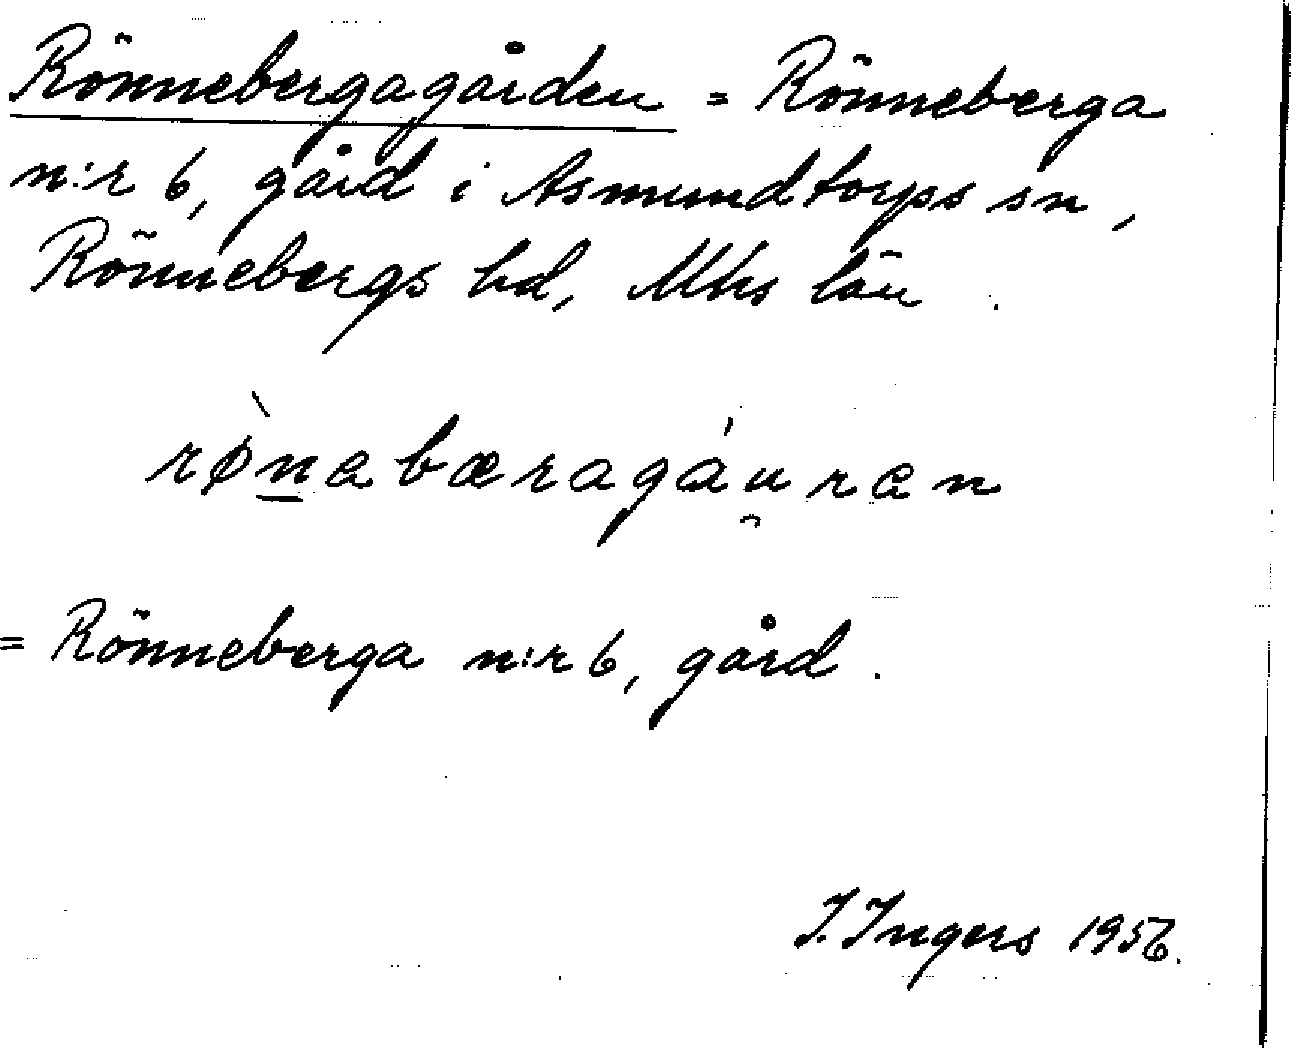 Rönnebergagården = Rönneberga
n:r 6, gård i Asmundtorps sn,
Rönnebergs hd, Mhs län.
rø̀n̲abæragáu̯ran
= Rönneberga n:r 6, gård.
I. Ingers 1956.